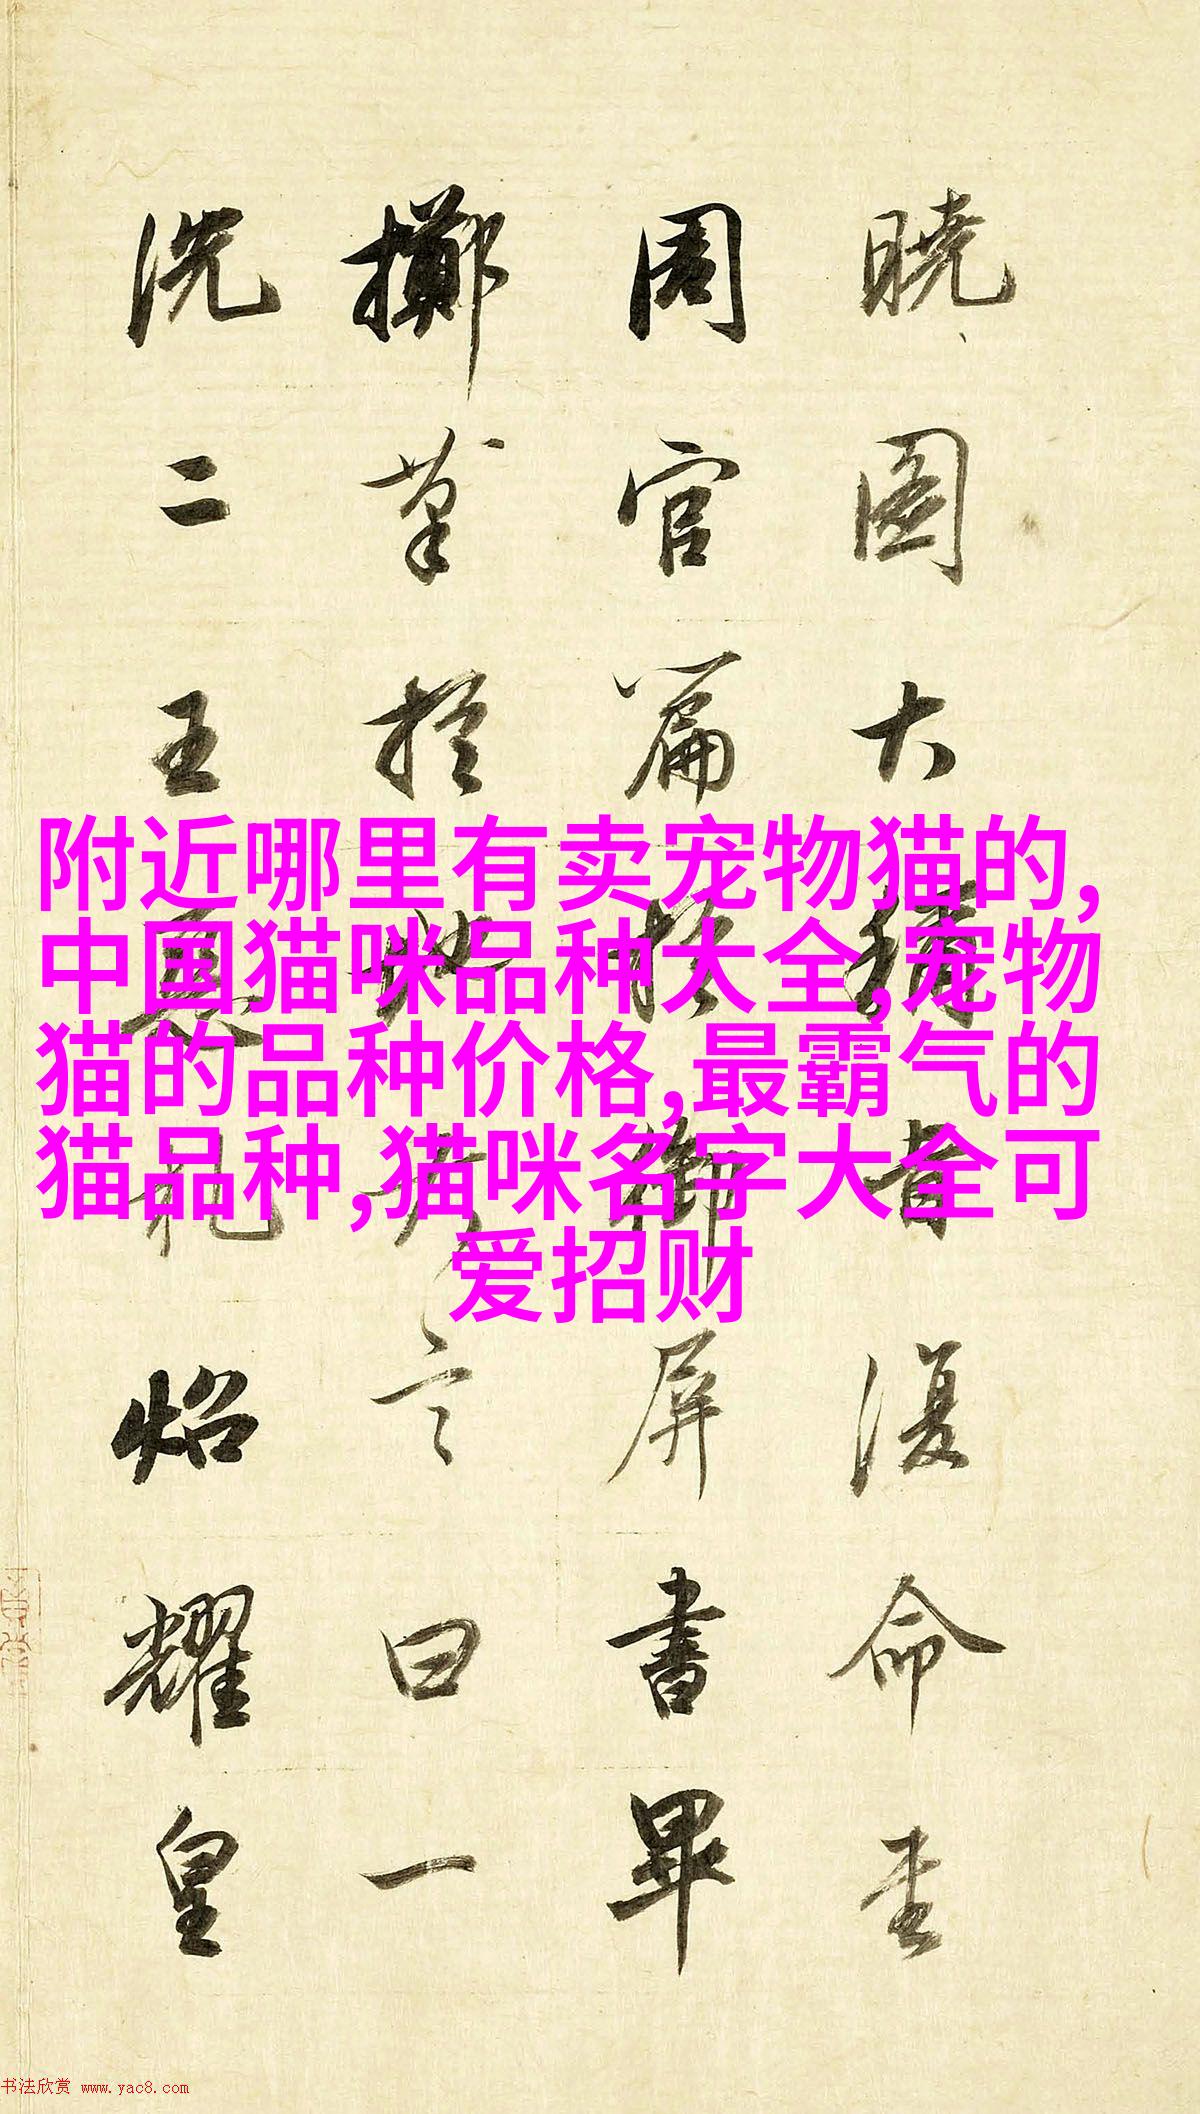 附近哪里有卖宠物猫的,
中国猫咪品种大全,宠物
猫的品种价格,最霸气的
猫品种,猫咪名字大全可
爱招财
曉圖大復命
周官篇於御屏書畢
擲筆於地大言曰一
洗二王惡札炤耀皇
书法欣赏 www.yac8.com